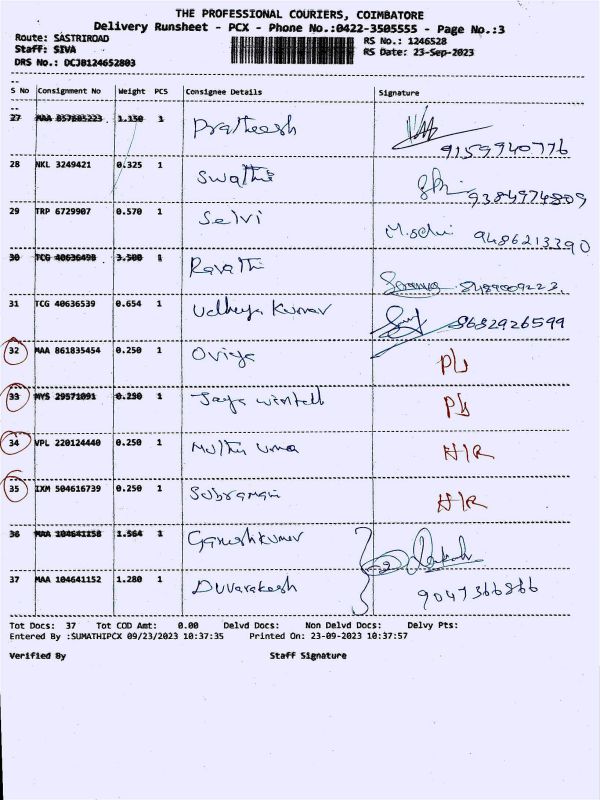 THE PROFESSIONAL COURIERS, COIMBATORE
Delivery Runsheet - PCX - Phone No.:0422-3505555 - Page No.:3
Route: SASTRIROAD RS No.: 1246528
Staff: SIVA RS Date: 23-Sep-2023
DRS No.: DCJ0124652803
S No Consignment No Weight PCS Consignee Details Signature
27 MAA 857605223 1.150 1 Pratheesh 9159940776
28 NKL 3249421 0.325 1 Swathi 9384974809
29 TRP 6729907 0.570 1 Selvi M.selvi 9486213390
30 TCG 40636498 3.500 1 Revathi 8489009222
31 TCG 40636539 0.654 1 Udhaya Kumar 8682926599
32 MAA 861835454 0.250 1 Oviya P/L
33 MYS 29571091 0.250 1 Jaya P/L
34 VPL 220124440 0.250 1 Muthu uma H/R
35 IXM 504616739 0.250 1 Subramani H/R
36 MAA 104641158 1.564 1 Ganeshkumar
37 MAA 104641152 1.280 1 Duvarakesh 9047366866
Tot Docs: 37 Tot COD Amt: 0.00 Delvd Docs: Non Delvd Docs: Delvy Pts:
Entered By :SUMATHIPCX 09/23/2023 10:37:35 Printed On: 23-09-2023 10:37:57
Verified By Staff Signature